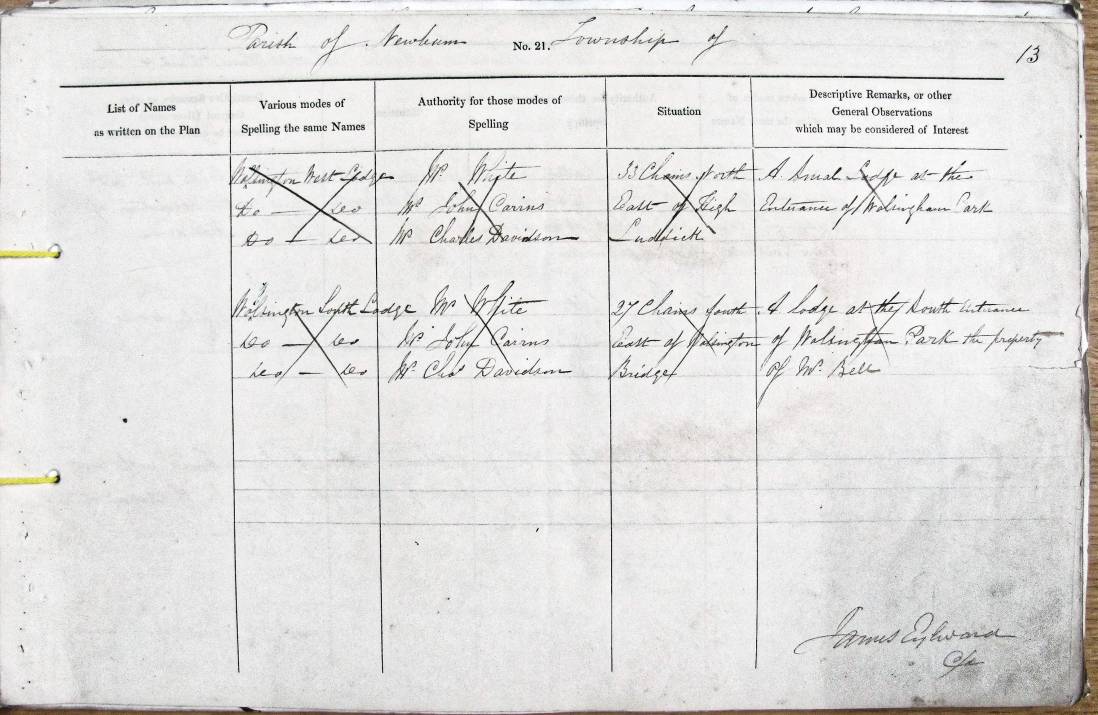 Parish of Newburn No. 21. Township of
13
List of Names
as written on the Plan
Various modes of
Spelling the same Names
Authority for those modes of
Spelling
Situation
Descriptive Remarks, or other
General Observations
which may be considered of Interest
Wolsington West Lodge Mr. White 33 Chains North A Small Lodge at the
Do — Do Mr John Cairns East of High Entrance of Wolsingham Park
Do — Do Mr Charles Davidson Luddick
Wolsington South Lodge Mr White 27 Chains South A lodge at the South entrance
Do — Do Mr John Cairns East of Wolsington of Wolsingham Park the property
Do — Do Mr Chas Davidson Bridge of Mr. Bell
James